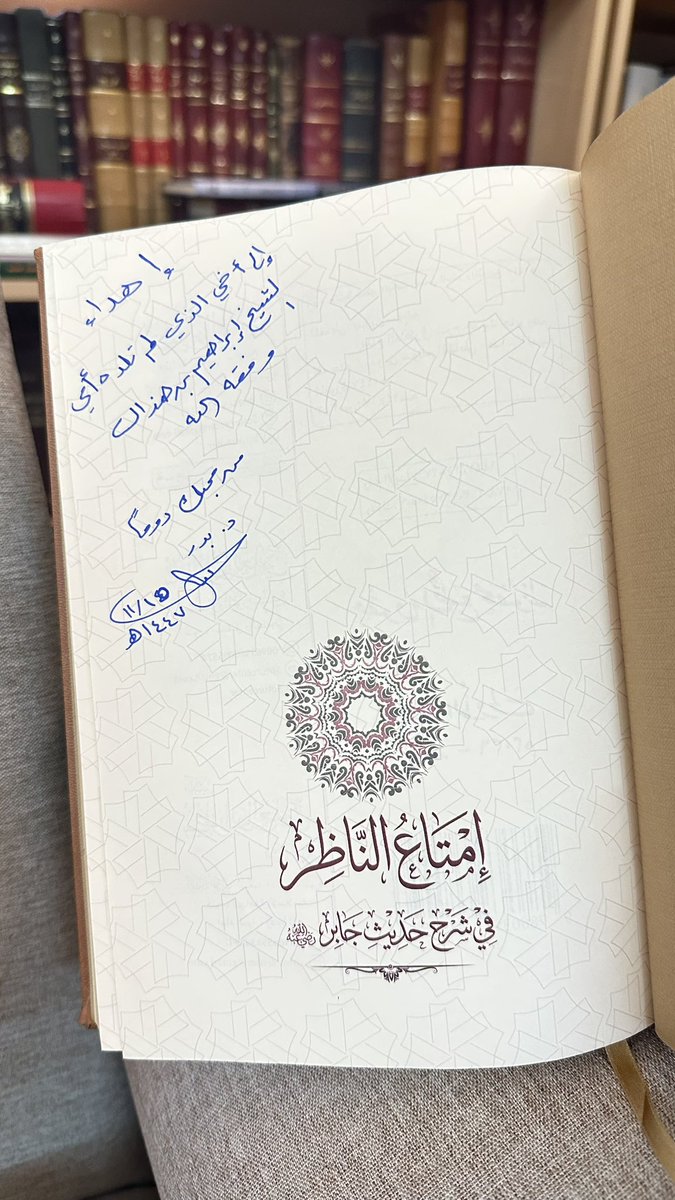 إهداء
إلى أخي الذي لم تلده أمي
الشيخ إبراهيم بن هذال
وفقه الله
من محبك دوماً
د. بدر
١١/١٥
١٤٤٧هـ
إِمْتَاعُ النَّاظِرِ
فِي شَرْحِ حَدِيثِ جَابِرٍ رضي الله عنه